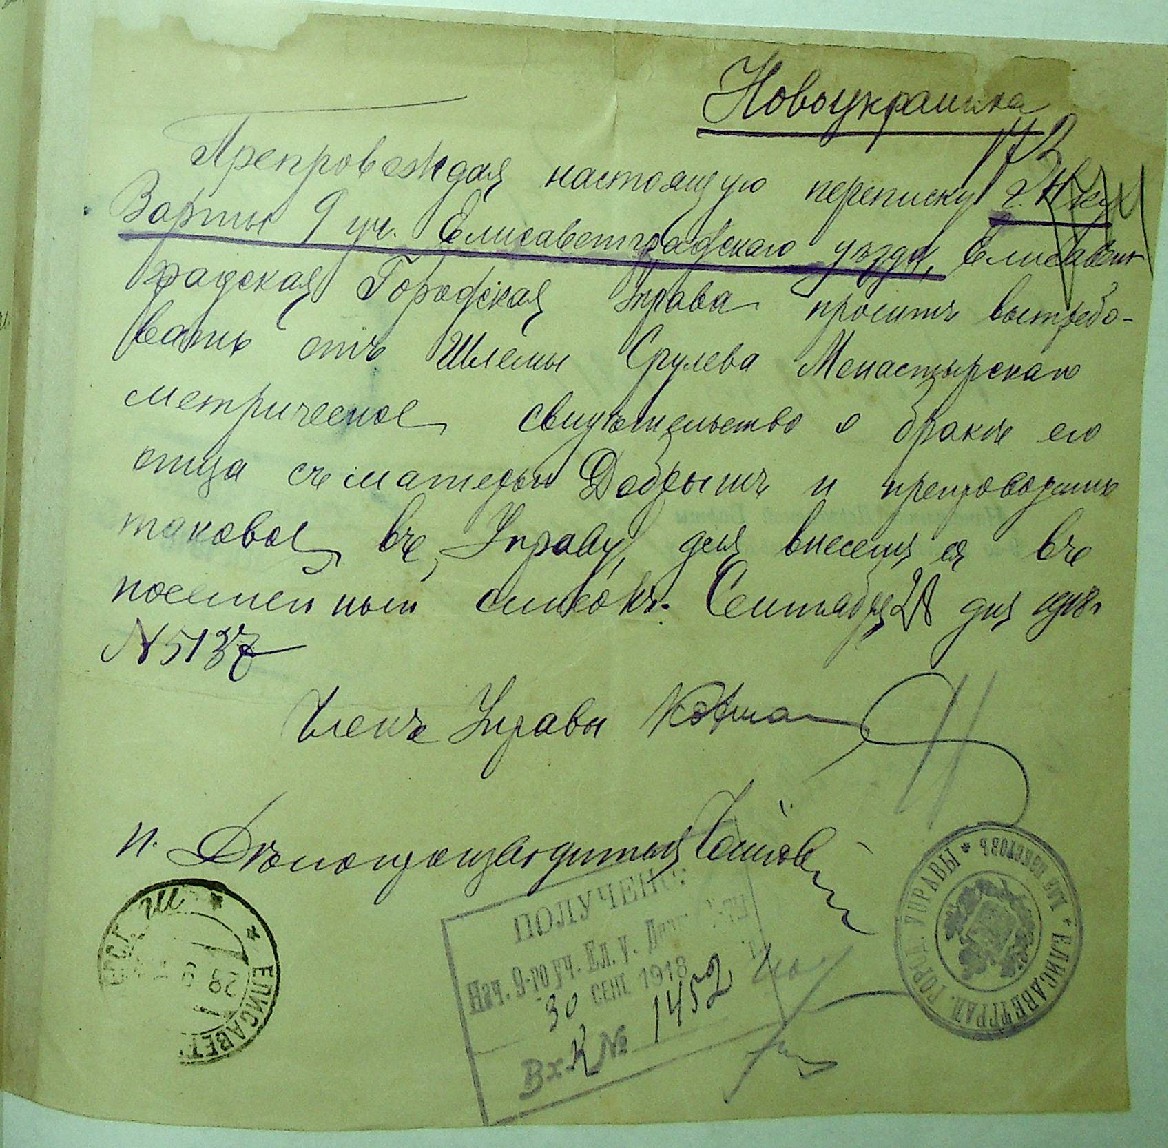 Новоукраинка
Препровождая настоящую переписку г. Нач.
Варты 9 уч. Елисаветградскаго уѣзда, Елисавет-
градская Городская Управа проситъ вытребо-
вать отъ Шлемы Срулева Монастырскаго
метрическое свидѣтельство о бракѣ его
отца съ матерью Добрышъ и препроводить
таковое въ Управу для внесения въ
посемейный списокъ. Сентября 28 дня 1918 г.
N 5137
Членъ Управы
п. Дѣлопроизводитель
ПОЛУЧЕНО:
Нач. 9-го уч. Ел. у.
30 СЕНТ. 1918
Вх. К № 1452
ЕЛИСАВЕТ
28 9
ЕЛИСАВЕТГРАД. ГОРОД. УПРАВЫ * ДЛЯ ПАКЕТОВЪ *